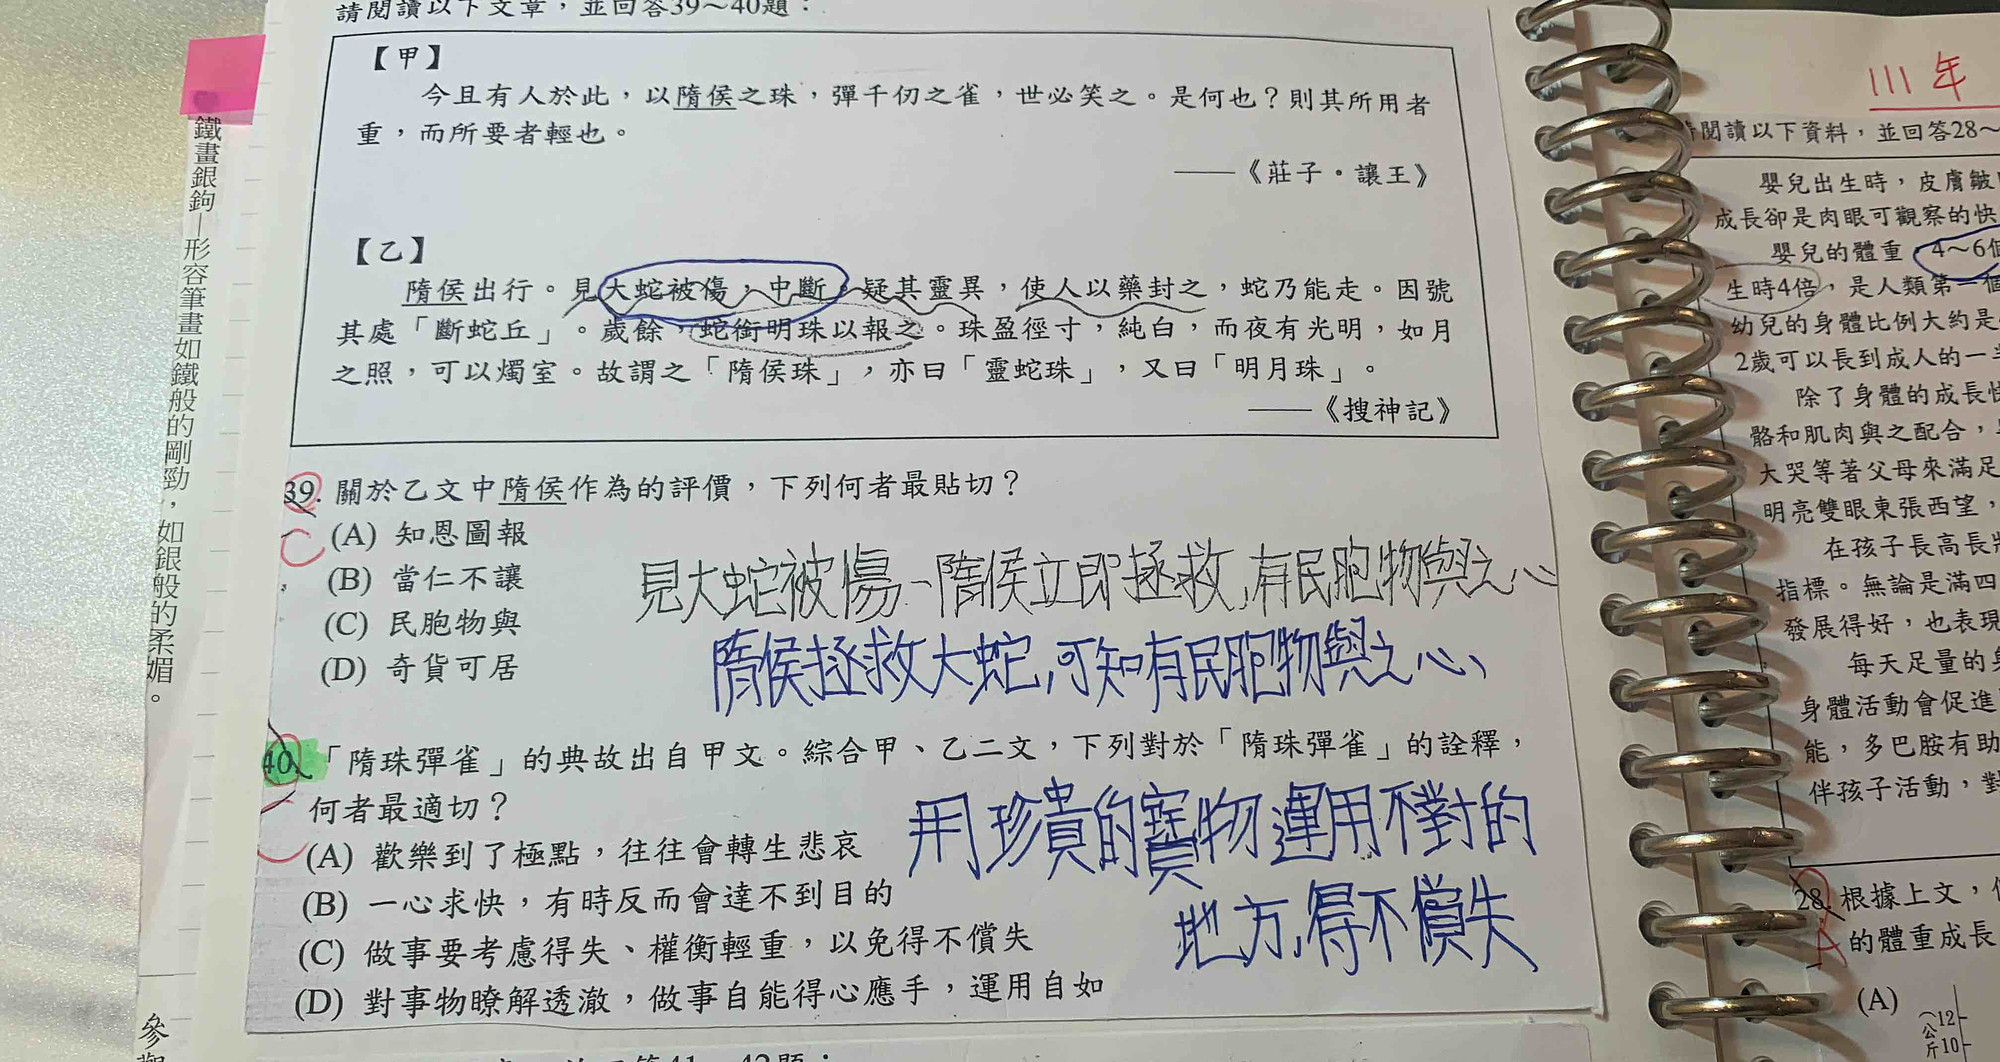 請閱讀以下文章，並回答39～40題：
【甲】
今且有人於此，以隋侯之珠，彈千仞之雀，世必笑之。是何也？則其所用者
重，而所要者輕也。
——《莊子·讓王》
【乙】
隋侯出行。見大蛇被傷，中斷。疑其靈異，使人以藥封之，蛇乃能走。因號
其處「斷蛇丘」。歲餘，蛇銜明珠以報之。珠盈徑寸，純白，而夜有光明，如月
之照，可以燭室。故謂之「隋侯珠」，亦曰「靈蛇珠」，又曰「明月珠」。
——《搜神記》
39. 關於乙文中隋侯作為的評價，下列何者最貼切？
C
(A) 知恩圖報
(B) 當仁不讓
(C) 民胞物與
(D) 奇貨可居
見大蛇被傷、隋侯立即拯救，有民胞物與之心
隋侯拯救大蛇，可知有民胞物與之心、
40.「隋珠彈雀」的典故出自甲文。綜合甲、乙二文，下列對於「隋珠彈雀」的詮釋，
何者最適切？
(A) 歡樂到了極點，往往會轉生悲哀
(B) 一心求快，有時反而會達不到目的
(C) 做事要考慮得失、權衡輕重，以免得不償失
(D) 對事物瞭解透澈，做事自能得心應手，運用自如
用珍貴的寶物運用不對的
地方，得不償失
鐵畫銀鉤—形容筆畫如鐵般的剛勁，如銀般的柔媚。
參
111年
請閱讀以下資料，並回答28～
嬰兒出生時，皮膚皺
成長卻是肉眼可觀察的快
嬰兒的體重，4～6個
生時4倍，是人類第一個
幼兒的身體比例大約是
2歲可以長到成人的一半
除了身體的成長快
骼和肌肉與之配合，
大哭等著父母來滿足
明亮雙眼東張西望，
在孩子長高長
指標。無論是滿四
發展得好，也表現
每天足量的
身體活動會促進
能，多巴胺有助
伴孩子活動，對
28. 根據上文，
A
的體重成長
(A)
公斤
12
10